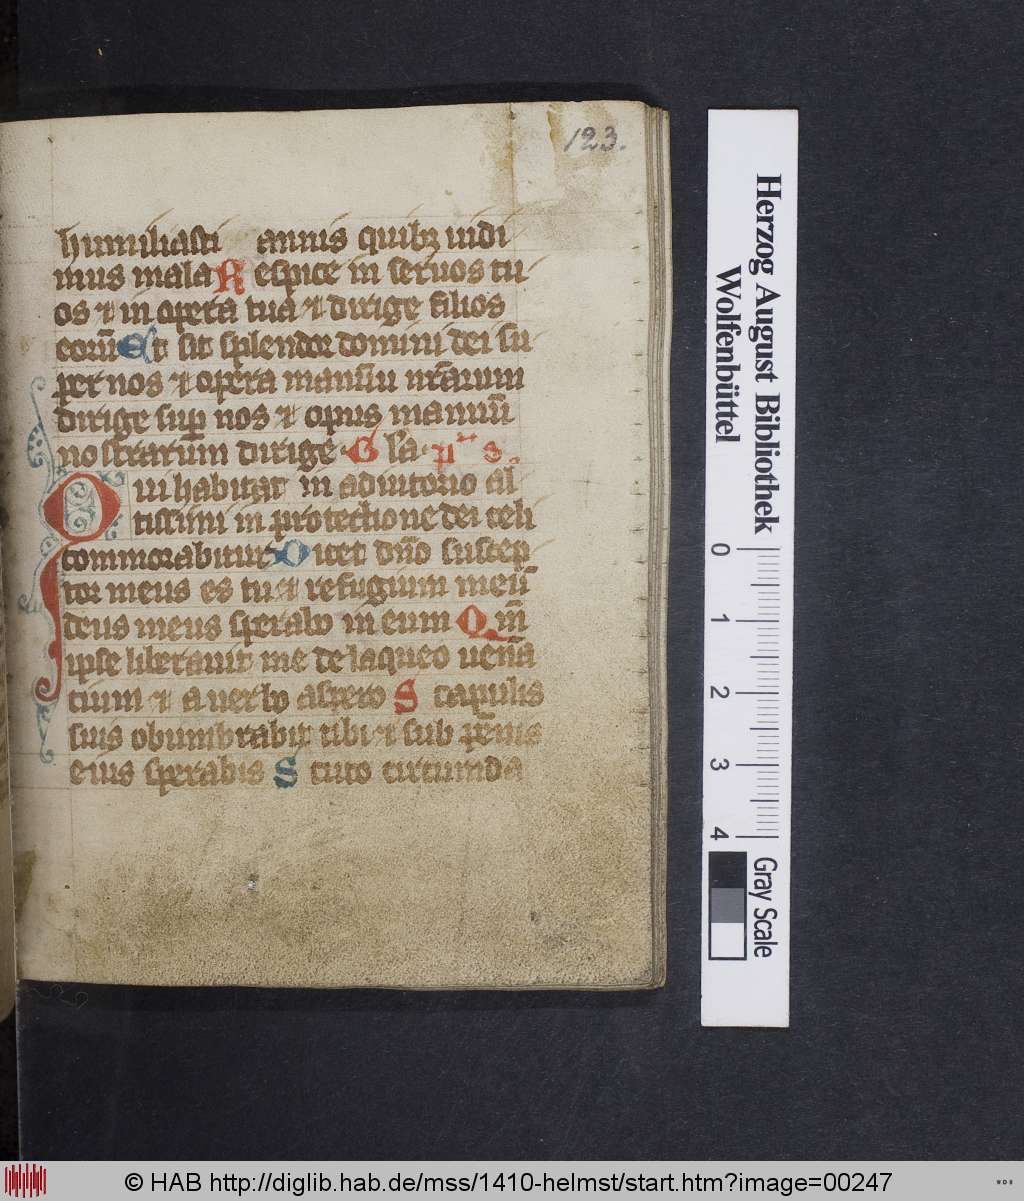 123.
humiliasti annis quibꝫ uidi
mus mala Respice in seruos tu
os ⁊ in opera tua ⁊ dirige filios
eorū Et sit splendor domini dei su
per nos ⁊ opera manuū nr̄arum
dirige sup̄ nos ⁊ opus manuū
nostrarum dirige G la p̄ʳⁱ
Qui habitat in adiutorio al
tissimi in protectione dei celi
commorabitur Dicet dn̄o suscep
tor meus es tu ⁊ refugium meū
deus meus sperabo in eum Qm̄
ipse liberauit me de laqueo uenā
tium ⁊ a uerbo aspero Scapulis
suis obumbrabit tibi ⁊ sub pēnis
eius sperabis Scuto circumda
Herzog August Bibliothek
Wolfenbüttel
0 1 2 3 4
Gray Scale
© HAB http://diglib.hab.de/mss/1410-helmst/start.htm?image=00247